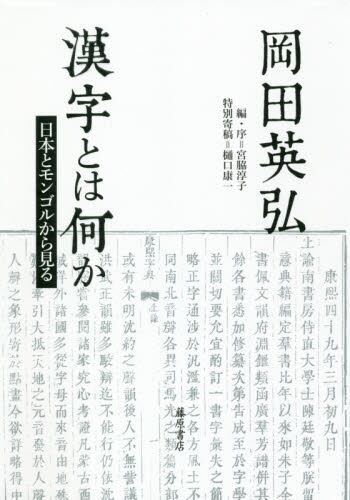 岡田英弘
編・序=宮脇淳子
特別寄稿=樋口康一
漢字とは何か
日本とモンゴルから見る
康熙四十九年三月初九日
上諭南書房侍直大學士陳廷敬等朕留
意典籍編定羣書比年以來如朱子
書佩文韻府淵鑑類函廣羣芳譜併
餘各書悉加修纂次第告成至於字學
並關切要允宜酌訂一書字彙失之
略正字通涉於汎濫兼之各方風土不
同南北音聲各異司馬光之類篇分部
康熙字典
上諭
或有未明沈約之聲韻後人不無訾議
洪武正韻雖多駁辯迄不能行仍依沈
嘗參閱諸家究心考證凡蒙古西
域洋外諸國多從字母而來音由地殊
牽引大抵天地之元音發於人
人聲之象形寄於點畫今欲詳略得中
藤原書店